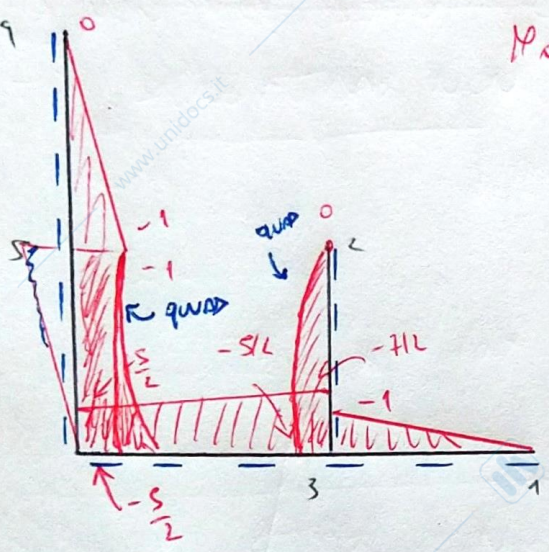 4
0
M
www.unidocs.it
-1
5
-1
QUAD
0
2
QUAD
5/2
-5/2
-7/2
-1
-5/2
3
1